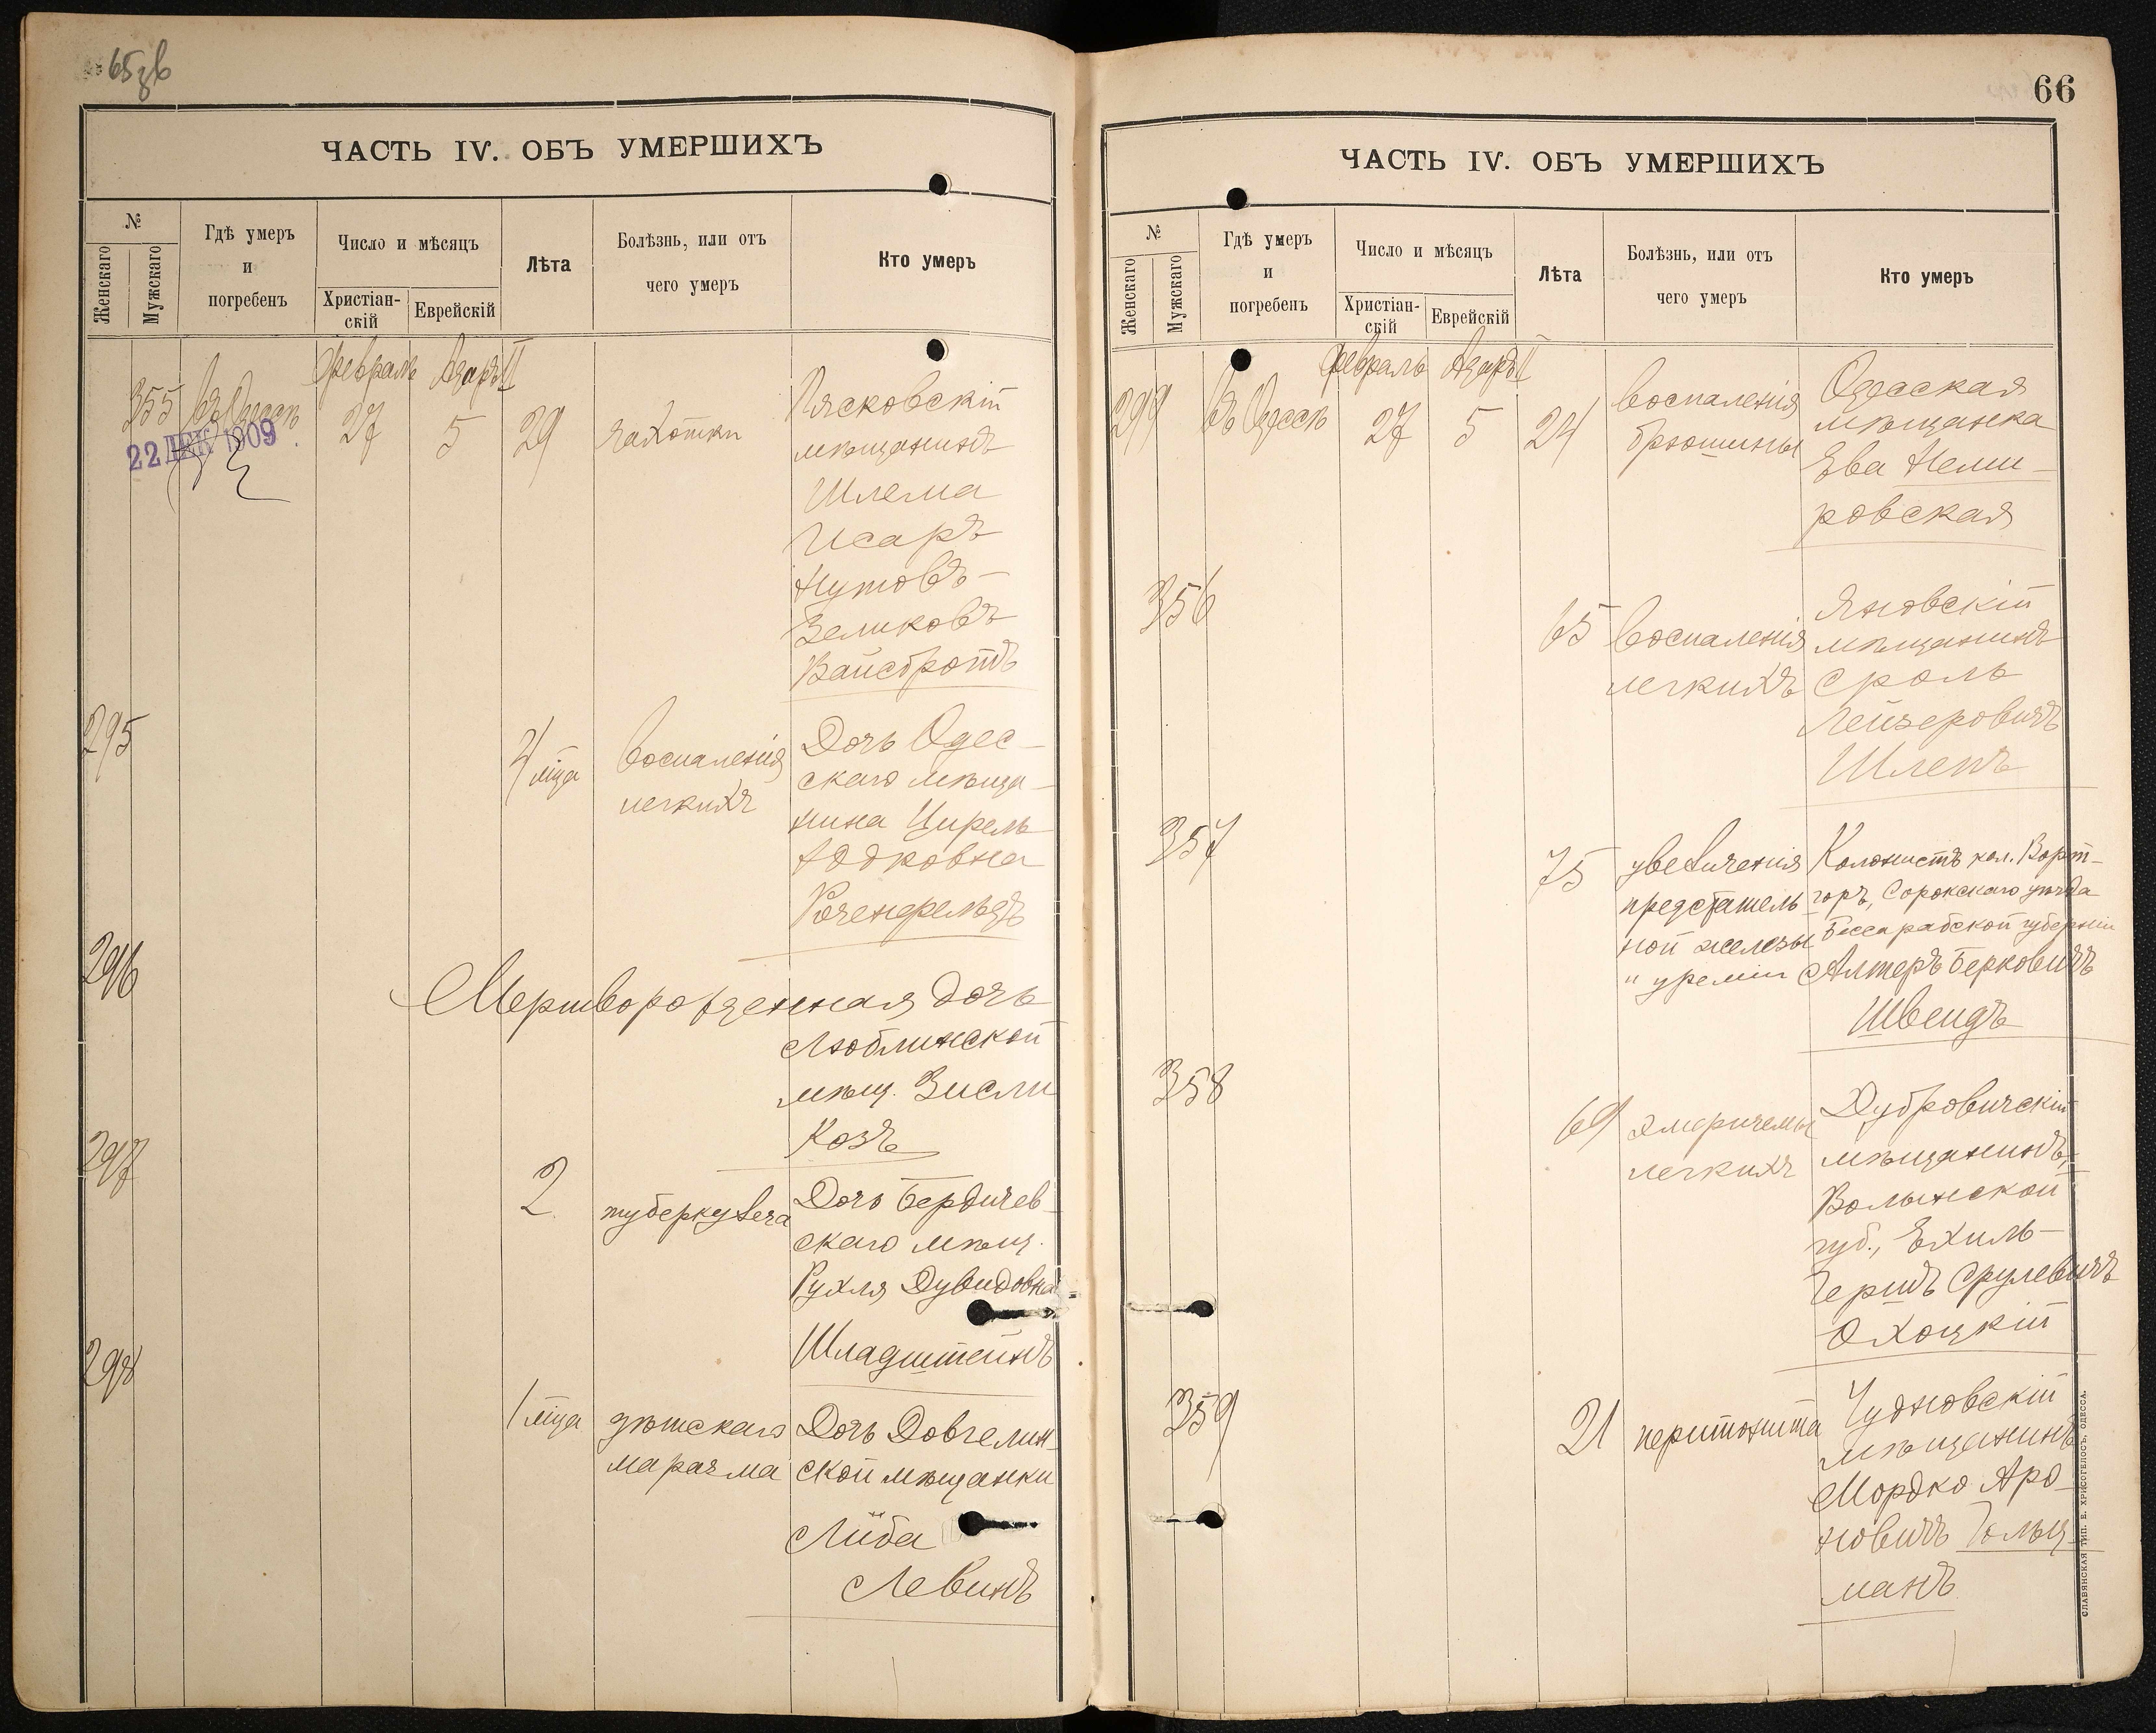 65зв
ЧАСТЬ IV. ОБЪ УМЕРШИХЪ
№
Женскаго
Мужскаго
Гдѣ умеръ
и
погребенъ
Число и мѣсяцъ
Христіан-
скій
Еврейскій
Лѣта
Болѣзнь, или отъ
чего умеръ
Кто умеръ
Февраль Адаръ II
355 въ Одессѣ 27 5 29 чахотки
22 ДЕК 1909
Пясковскій
мѣщанинъ
Шлема
Исаръ
Нутовъ-
Зеликовъ
Вайсбротъ
295
4 м-ца
воспаленія
легкихъ
Дочь Одес-
скаго мѣща-
нина Цирель
Розенфельдъ
296
Мертворожденная дочь
Люблинской
мѣщ. Зисли
Козъ
297
2
туберкулеза
Дочь Бердичев-
скаго мѣщ.
Рухля Дувидовна
Шладштейнъ
298
1 м-ца
дѣтскаго
маразма
Дочь Довгелин-
ской мѣщанки
Либа
Левинъ
66
ЧАСТЬ IV. ОБЪ УМЕРШИХЪ
№
Женскаго
Мужскаго
Гдѣ умеръ
и
погребенъ
Число и мѣсяцъ
Христіан-
скій
Еврейскій
Лѣта
Болѣзнь, или отъ
чего умеръ
Кто умеръ
Февраль Адаръ II
299 въ Одессѣ 27 5 24
воспаленія
брюшины
Одесская
мѣщанка
Ева Неми-
ровская
356
65
воспаленія
легкихъ
Яновскій
мѣщанинъ
Сроль
Лейзеровичъ
Шленъ
357
75
увеличенія
предстатель
ной железы
и уреміи
Колонистъ кол. Верт-
горъ, Сорокскаго уѣзда
Бессарабской губерніи
Алтеръ Берковичъ
Швейдъ
358
69
эмфиземы
легкихъ
Дубровичскій
мѣщанинъ,
Волынской
губ., Ехиль-
Гершъ Срулевичъ
Охоцкій
359
21
перитонита
Чудновскій
мѣщанинъ
Мордко Аро-
новичъ Гольц-
манъ
СЛАВЯНСКАЯ ТИП. Е. ХРИСОГЕЛОСЪ, ОДЕССА.